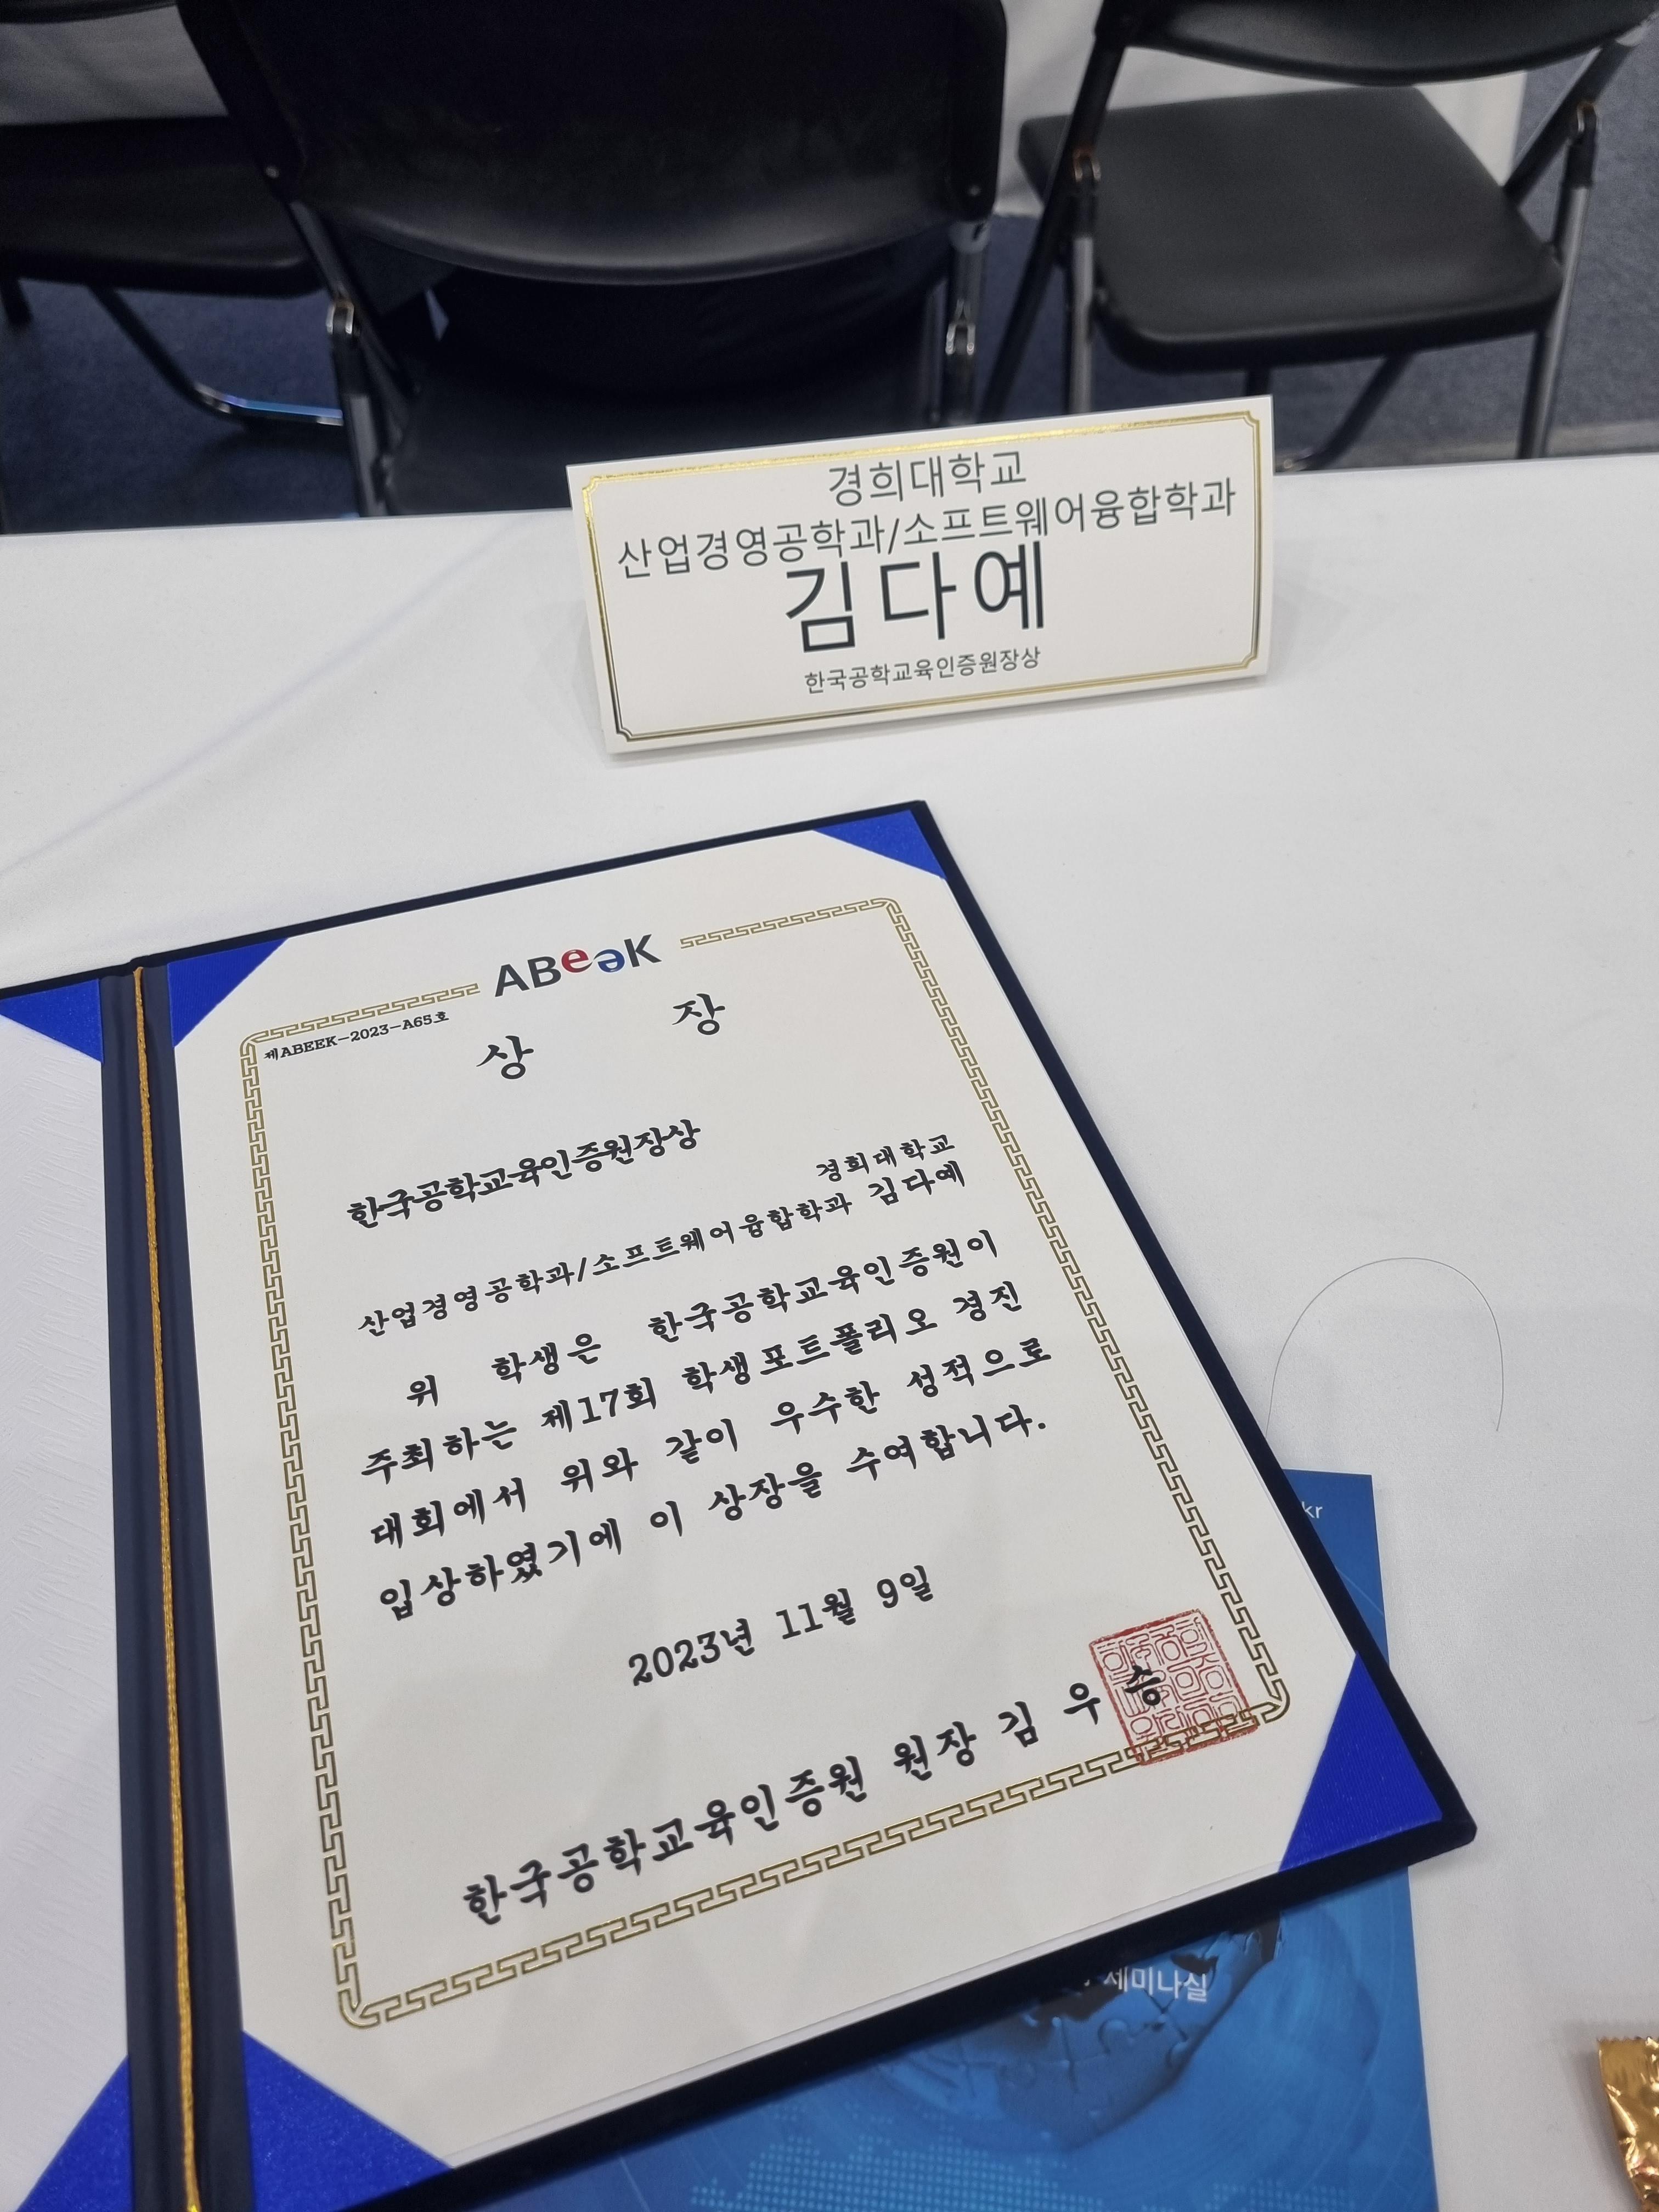 경희대학교
산업경영공학과/소프트웨어융합학과
김다예
한국공학교육인증원장상
ABeeK
제ABEEK-2023-A65호
상 장
한국공학교육인증원장상
경희대학교
산업경영공학과/소프트웨어융합학과 김다예
위 학생은 한국공학교육인증원이
주최하는 제17회 학생포트폴리오 경진
대회에서 위와 같이 우수한 성적으로
입상하였기에 이 상장을 수여합니다.
2023년 11월 9일
한국공학교육인증원 원장 김 우 승
kr
세미나실